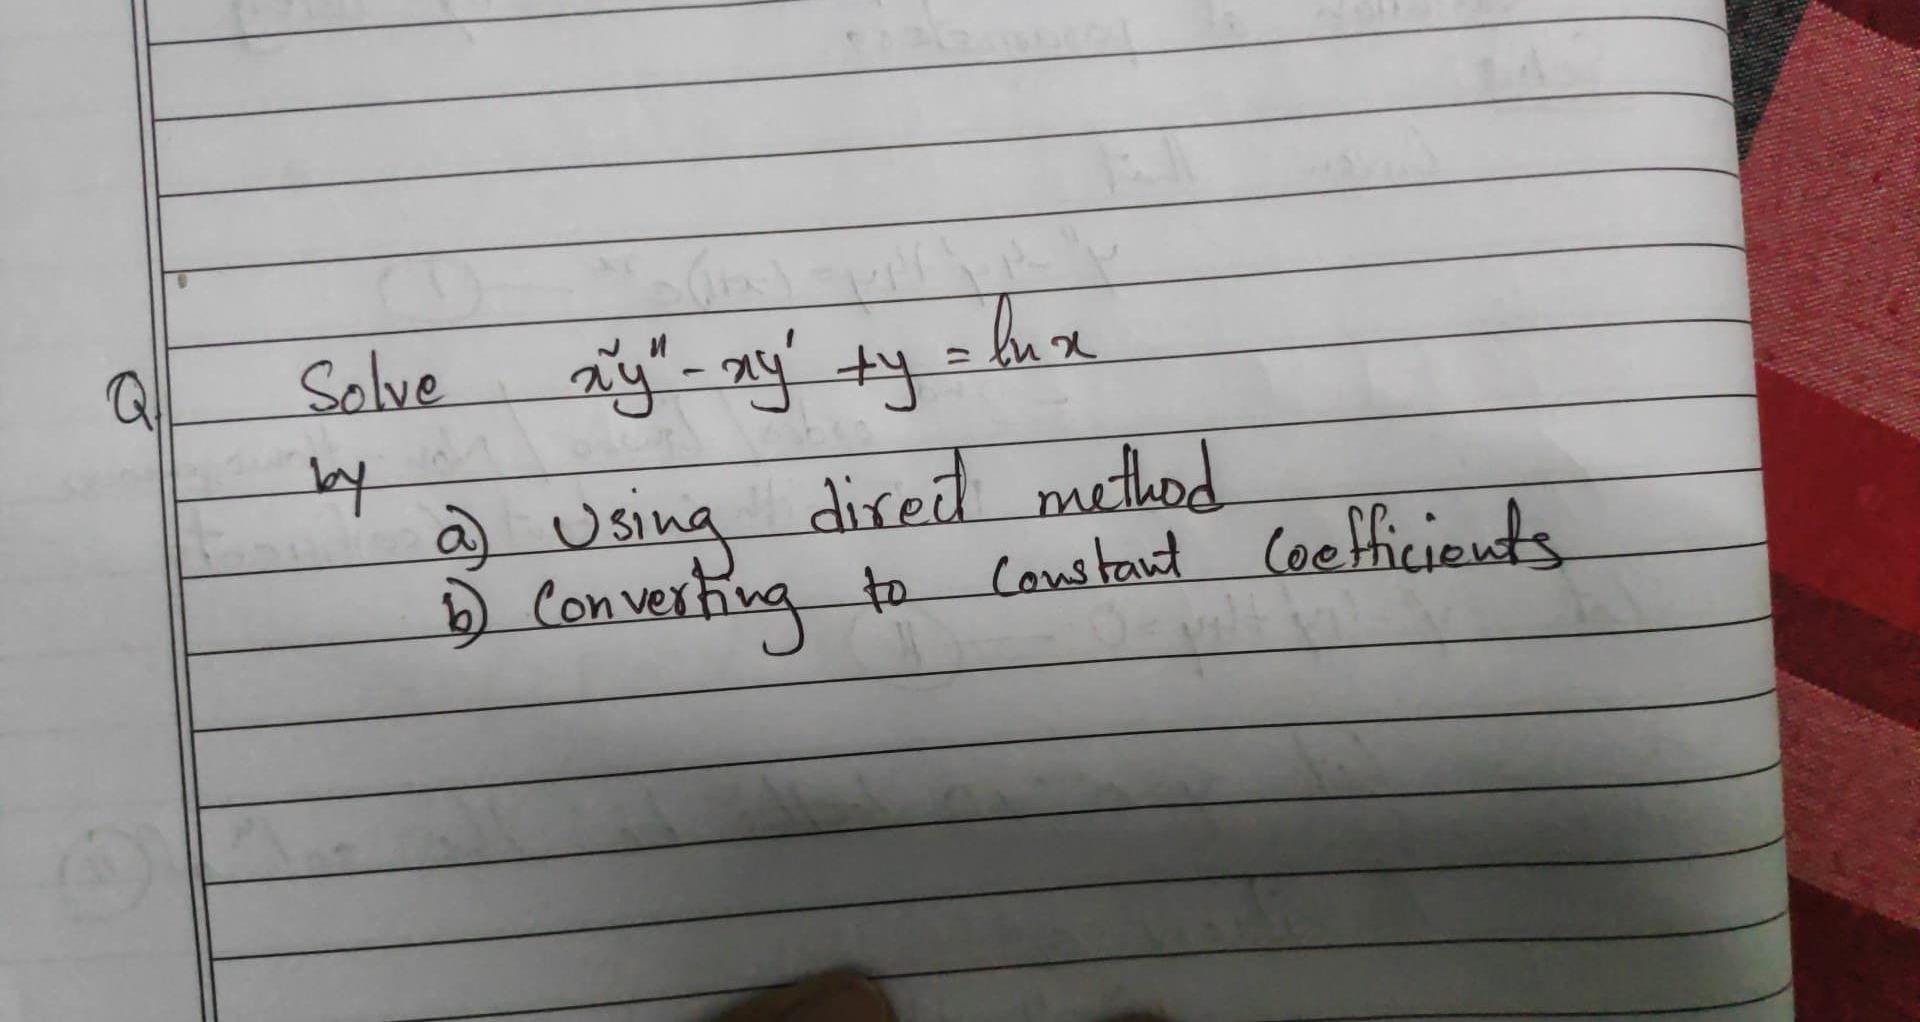 Q. Solve x²y" - xy' + y = ln x
by
a) Using direct method
b) Converting to Constant Coefficients